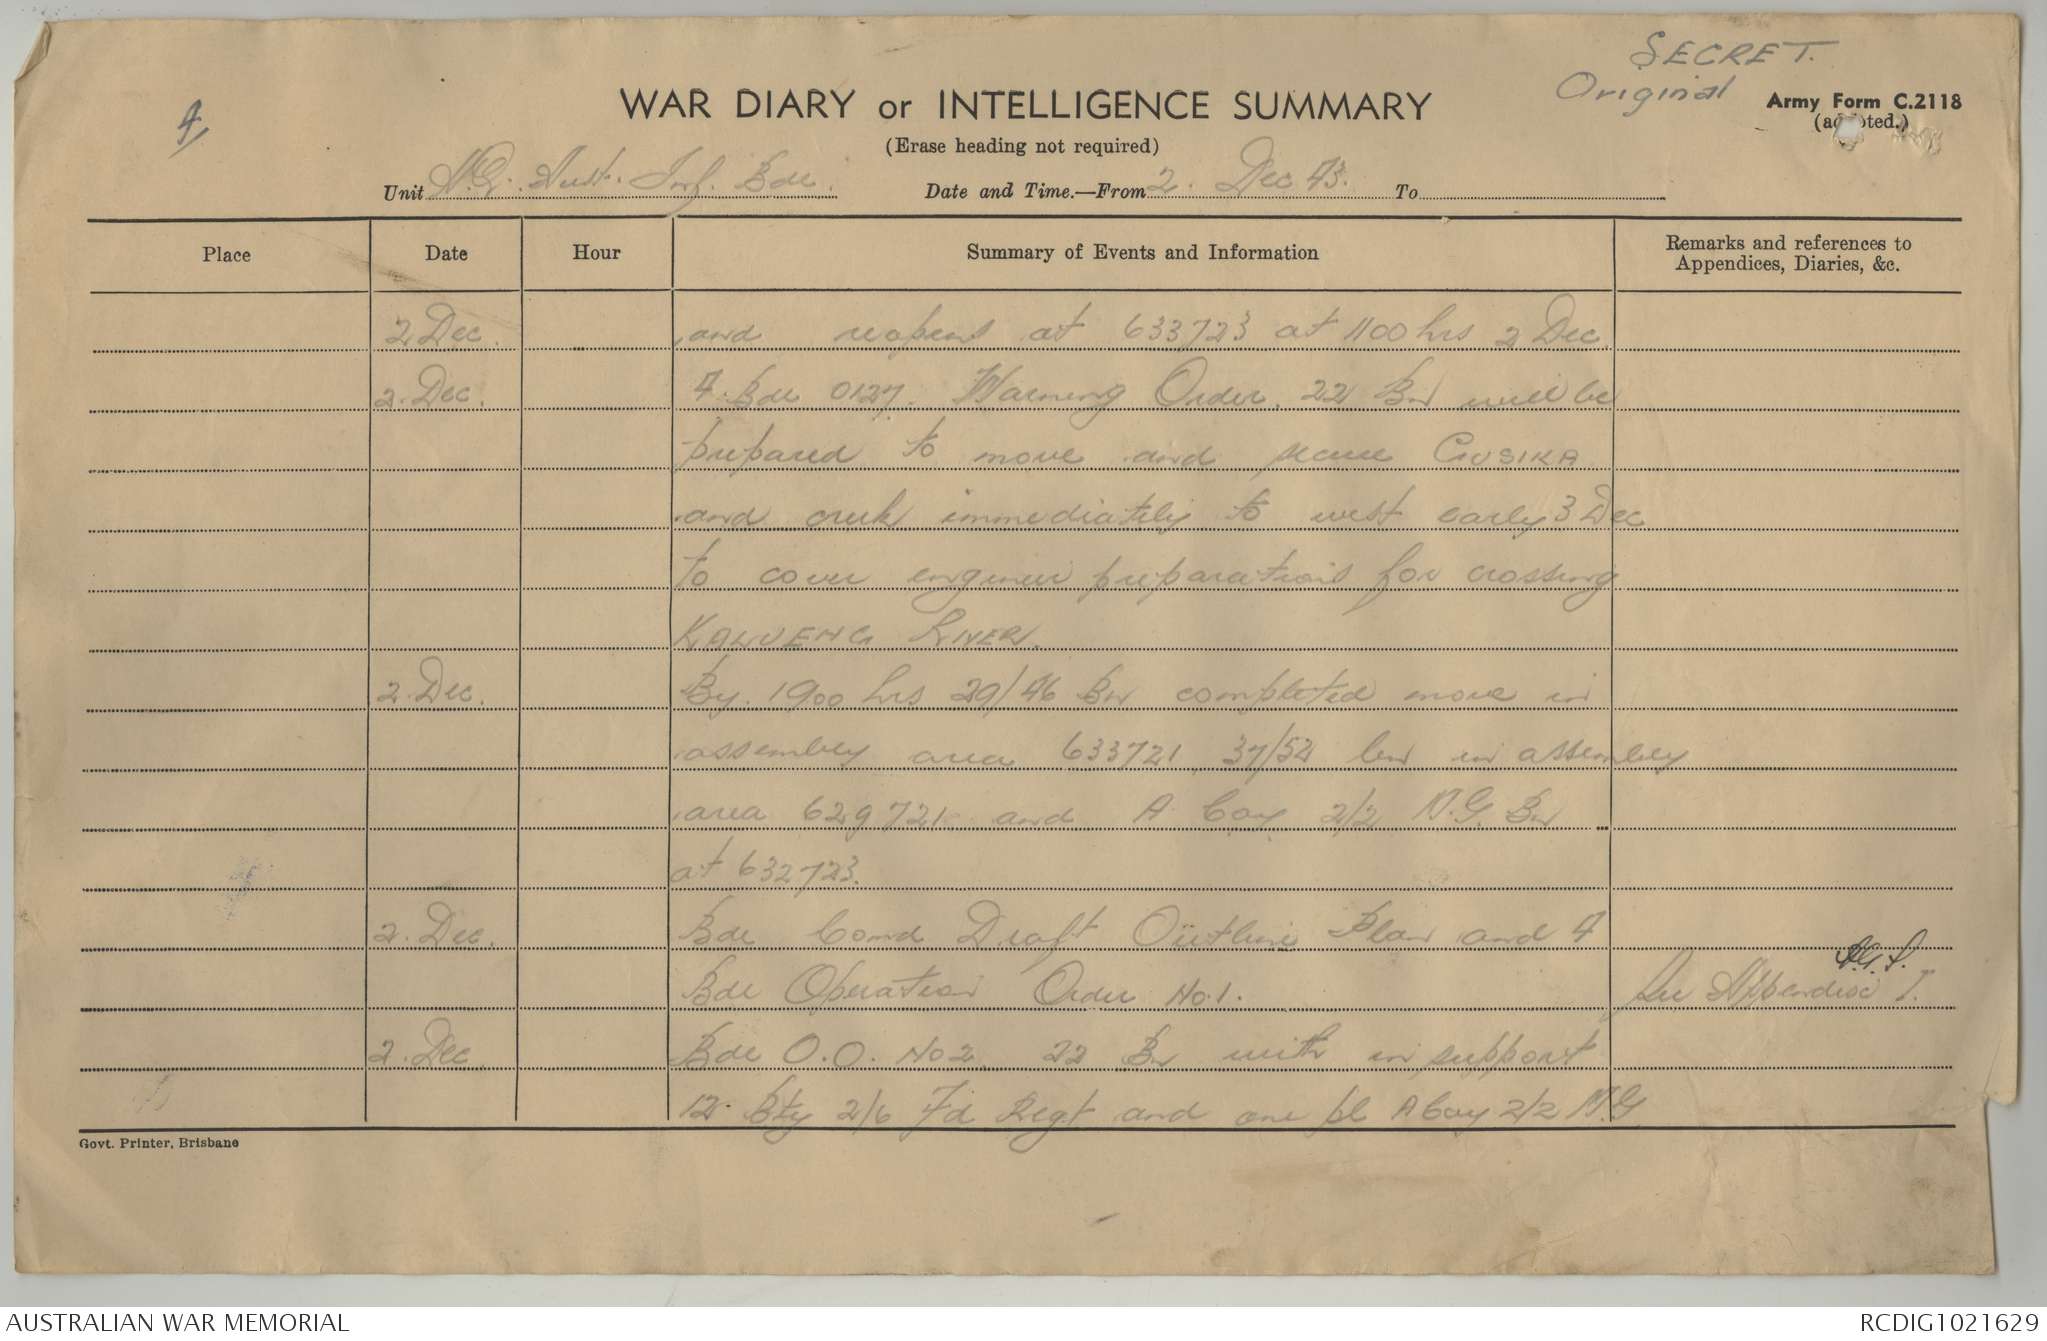 SECRET.
Original
4
WAR DIARY or INTELLIGENCE SUMMARY
Army Form C.2118
(Erase heading not required)
Unit Aust. Inf. Bde. Date and Time.—From 2. Dec 43. To
Place Date Hour Summary of Events and Information Remarks and references to Appendices, Diaries, &c.
2 Dec. and reopens at 633723 at 1100 hrs 2 Dec.
2. Dec. 4 Bde 0127. Warning Order. 22 Bn will be
prepared to move and secure GUSIKA
and creek immediately to west early 3 Dec
to cover engineer preparations for crossing
KALUENG RIVER.
2. Dec. By. 1900 hrs 29/46 Bn completed move in
assembly area 633721 37/52 bn in assembly
area 629721 and A Coy 2/2 M.G. Bn
at 632723.
2. Dec. Bde Comd Draft Outline Plan and 4
Bde Operation Order No.1. See Appendix I.
2. Dec. Bde O.O. No 2. 22 Bn with in support
12. Bty 2/6 Fd Regt and one pl A Coy 2/2 M.G
Govt. Printer, Brisbane
AUSTRALIAN WAR MEMORIAL
RCDIG1021629